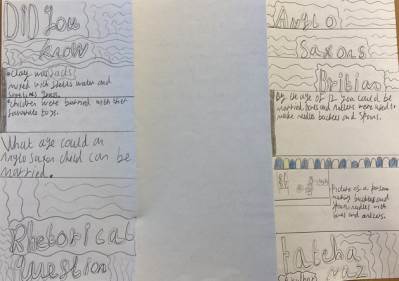 DiD you
know
Clay was
mixed with water and
children were burried with their
favourite toys.
What age could an
Anglo Saxon child can be
married.
Rhetorical
Question
Anglo
Saxons
Britian
By the age of 12 you could be
married, bones and antlers were used to
make needles buckets and spoons.
Picture of a person
making buckets and
spoons, needles with
bones and antlers.
Fatcha
naz